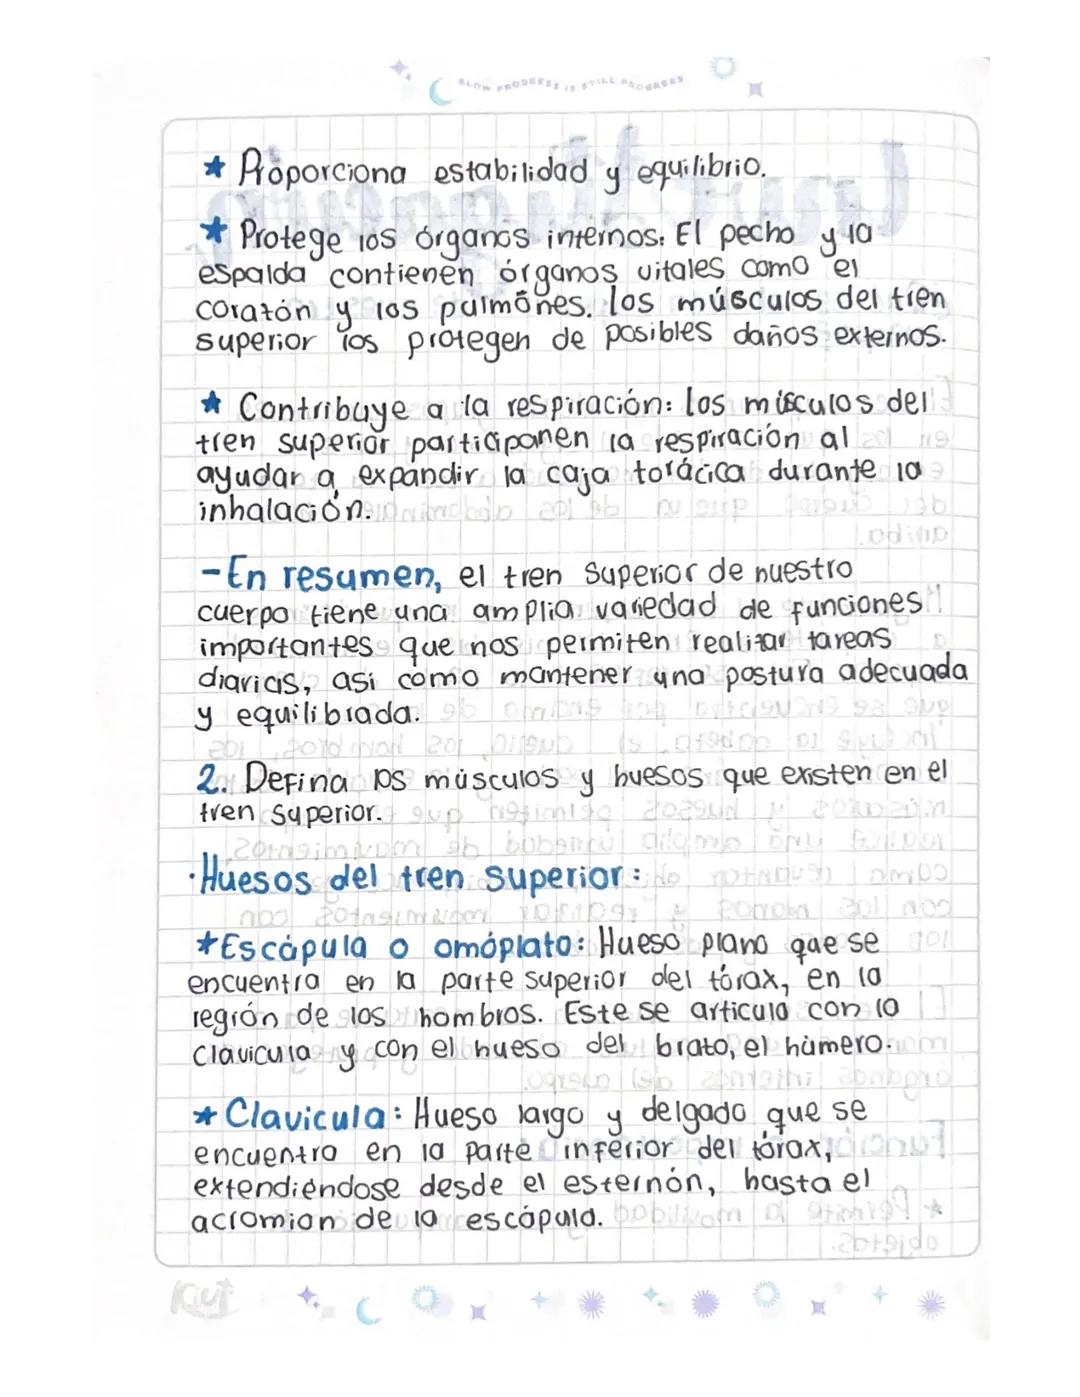 SLOW PROGRESS IS STILL PROGRESS
★ Proporciona estabilidad y equilibrio.
★ Protege los órganos internos: El pecho y la
espalda contienen órganos vitales como el
corazón y los pulmones. los músculos del tren
superior los protegen de posibles daños externos.
★ Contribuye a la respiración: los músculos del
tren superior participanen la respiración al
ayudar a expandir la caja torácica durante la
inhalación.
-En resumen, el tren superior de nuestro
cuerpo tiene una amplia variedad de funciones
importantes que nos permiten realizar tareas
diarias, asi como mantener una postura adecuada
y equilibrada.
2. Defina los músculos y huesos que existen en el
tren superior.
·Huesos del tren superior:
*Escápula o omóplato: Hueso plano que se
encuentra en la parte superior del tórax, en la
región de los hombros. Este se articula con la
clavicula y con el hueso del brazo, el húmero.
*Clavicula: Hueso largo y delgado que se
encuentra en la parte inferior del tórax,
extendiéndose desde el esternón, hasta el
acromion de la escápula.
Kiut